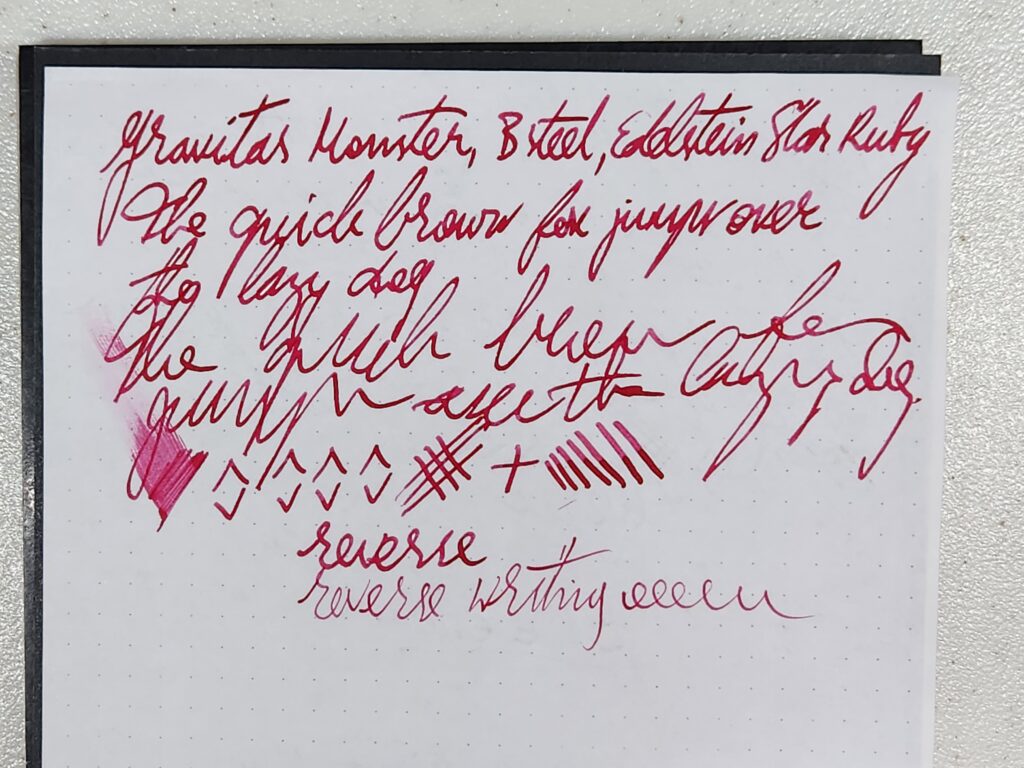 Gravitas Monster, B steel, Eddelstein Star Ruby
The quick brown fox jumps over
the lazy dog
The quick brown fox
jumps over the lazy dog
reverse
reverse writing eeeee